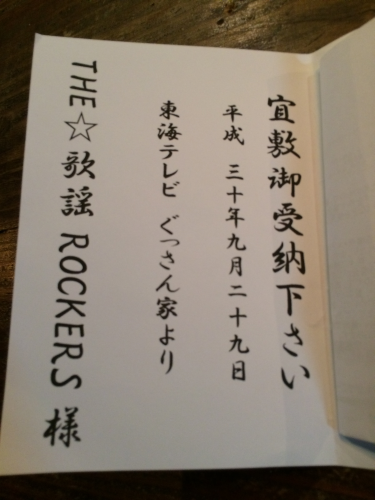 宜敷御受納下さい
平成 三十年九月二十九日
東海テレビ ぐっさん家より
THE☆歌謡 ROCKERS 様